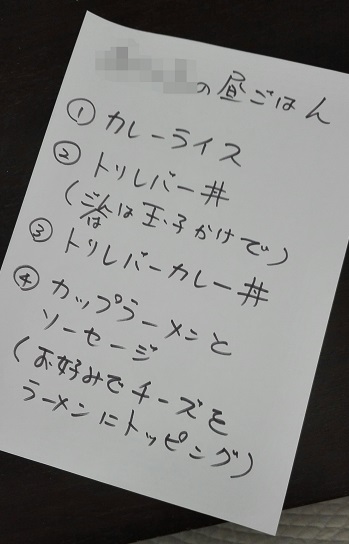 の昼ごはん
① カレーライス
② トリレバー丼
(ごはんは玉子かけで)
③ トリレバーカレー丼
④ カップラーメンと
ソーセージ
(お好みでチーズを
ラーメンにトッピング)